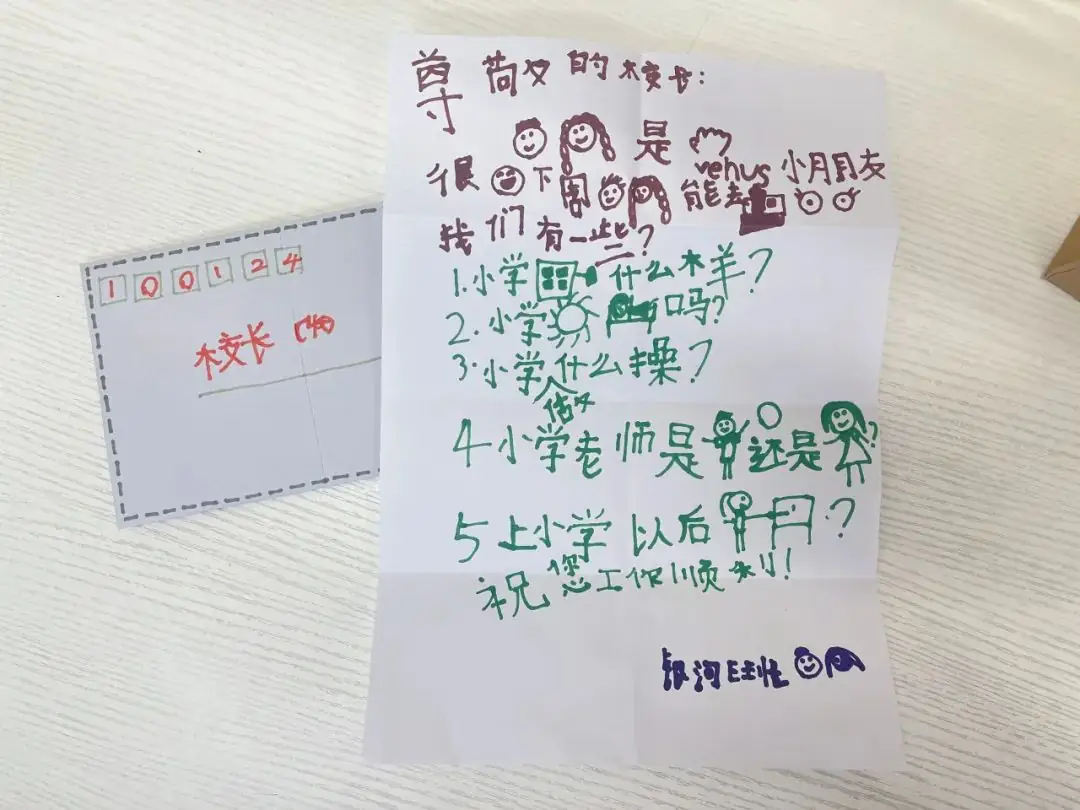 尊敬的校长:
是
很 下周 能去
venus 小朋友
我们有一些?
1.小学 什么样?
2.小学 吗?
3.小学什么操?
做
4 小学老师是 还是 ?
5 上小学 以后 ?
祝您工作顺利!
银河
100124
校长